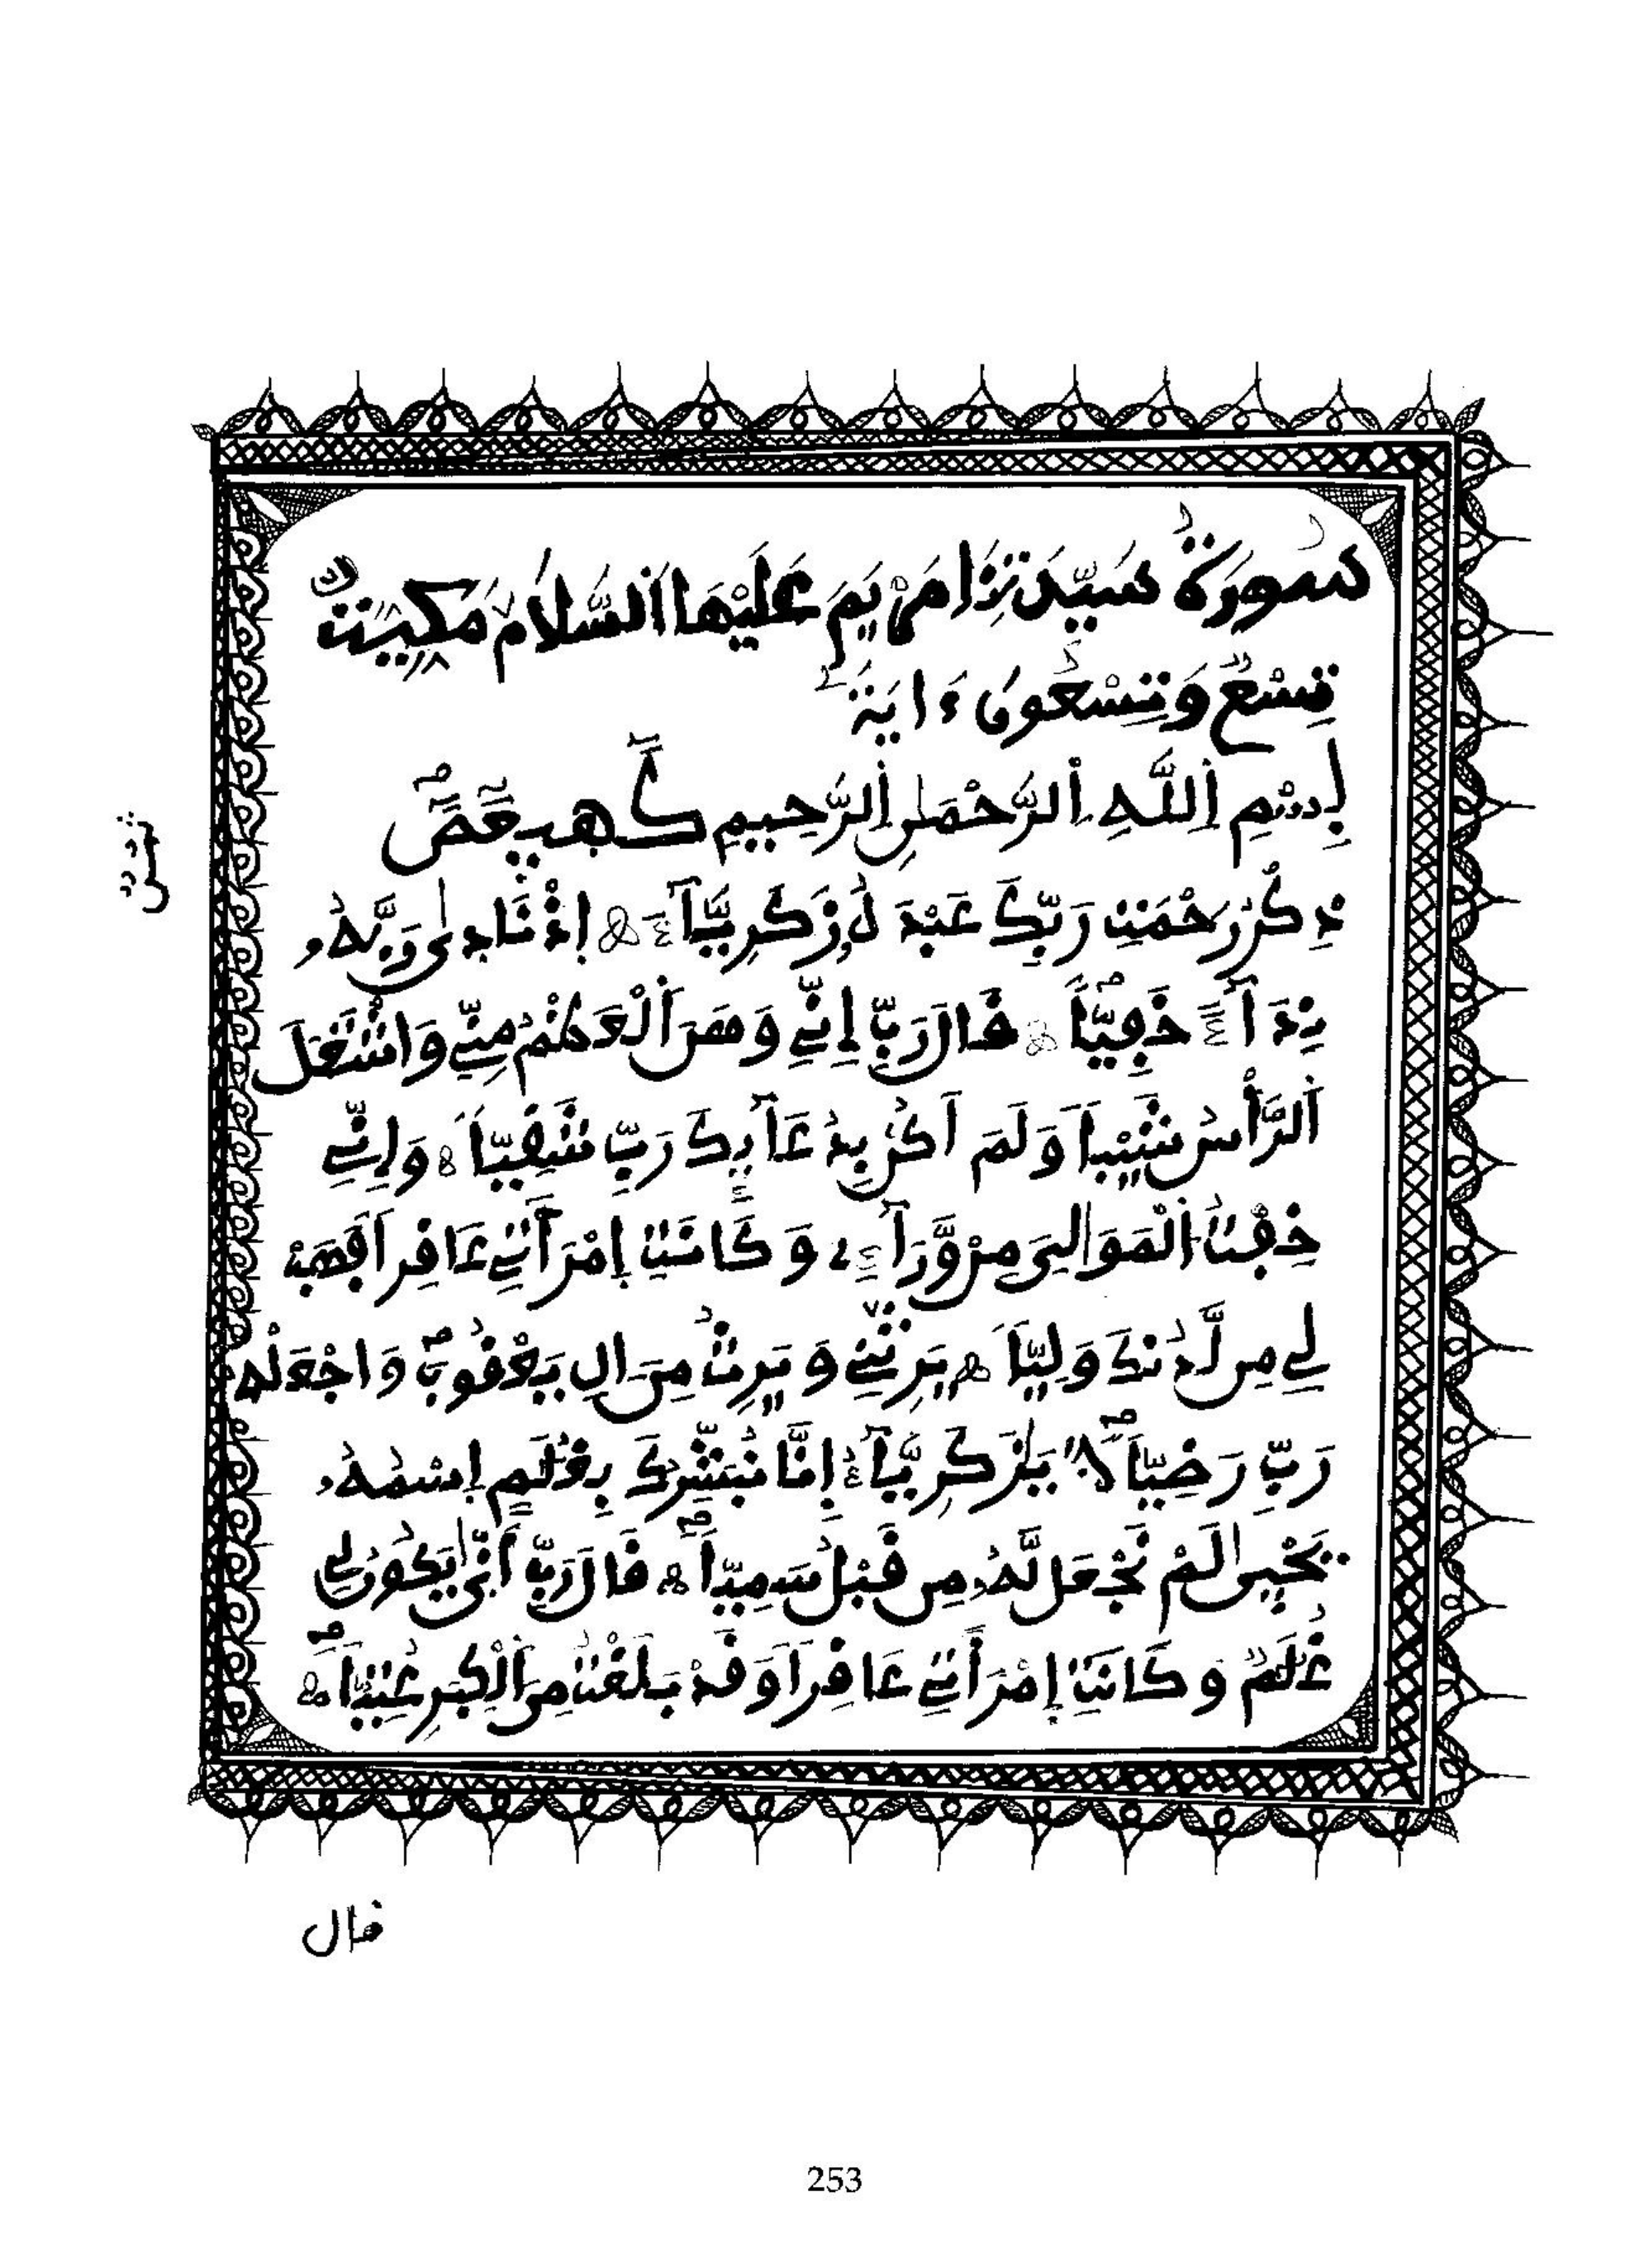 سُورَةُ سَيِّدَتِنَا مَرْيَمَ عَلَيْهَا اَلسَّلَامُ مَكِّيَّتٌ
تِسْعٌ وَتِسْعُونَ ءَايَةً
بِسْمِ اِللَّهِ اِلرَّحْمَٰنِ اِلرَّحِيمِ كٓهيعٓصٓ
ذِكْرُ رَحْمَتِ رَبِّكَ عَبْدَهُۥ زَكَرِيَّآءَ اِذْ نَادٜىٰ رَبَّهُۥ
نِدَآءً خَڢِيّاً ڧَالَ رَبِّ إِنِّے وَهَنَ اَلْعَظْمُ مِنِّے وَاشْتَعَلَ
اَلرَّأْسُ شَيْباً وَلَمَ اَكُنۢ بِدُعَآئِكَ رَبِّ شَڧِيّاً وَإِنِّے
خِڢْتُ اُلْمَوَٰلِيَ مِنْ وَّرَآءِے وَكَانَتِ اِمْرَأَتِے عَاڧِراً ڢَهَبْ
لِے مِن لَّدُنكَ وَلِيّاً يَرِثُنِے وَيَرِثُ مِنَ اٰلِ يَعْڧُوبَ وَاجْعَلْهُ
رَبِّ رَضِيّاً يَٰزَكَرِيَّآءُ اِنَّا نُبَشِّرُكَ بِغُلَٰمٍ اِسْمُهُۥ
يَحْيٜىٰ لَمْ نَجْعَل لَّهُۥ مِن ڧَبْلُ سَمِيّاً ڧَالَ رَبِّ أَنّٜىٰ يَكُونُ لِے
غُلَٰمٌ وَكَانَتِ اِمْرَأَتِے عَاڧِراً وَڧَدْ بَلَغْتُ مِنَ اَلْكِبَرِ عُتِيّاً
ڧال
253